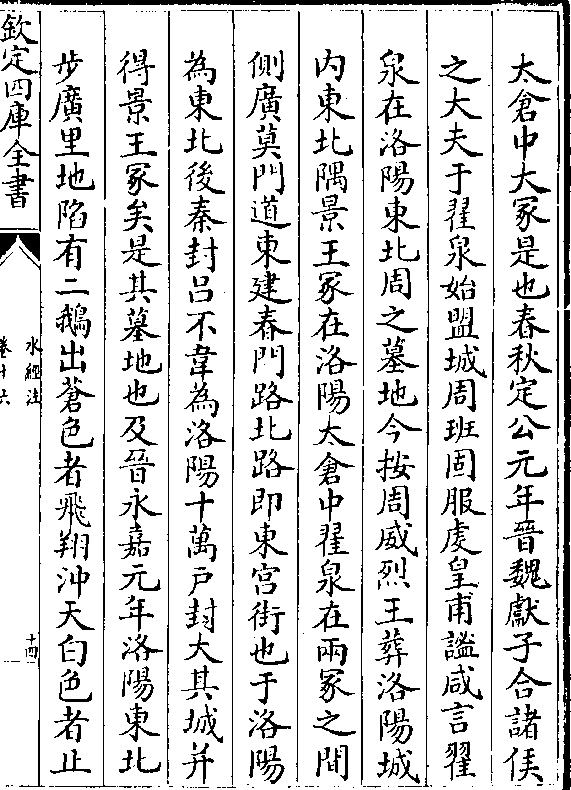 太倉中大冢是也春秋定公元年晉魏獻子合諸侯
之大夫于翟泉始盟城周班固服虔皇甫謐咸言翟
泉在洛陽東北周之墓地今按周威烈王葬洛陽城
内東北隅景王冢在洛陽太倉中翟泉在兩冢之間
側廣莫門道東建春門路北路即東宫街也于洛陽
為東北後秦封吕不韋為洛陽十萬戸封大其城并
得景王冢矣是其墓地也及晉永嘉元年洛陽東北
步廣里地陷有二鵝出蒼色者飛翔沖天白色者止
欽定四庫全書
水經注
卷十六
十四